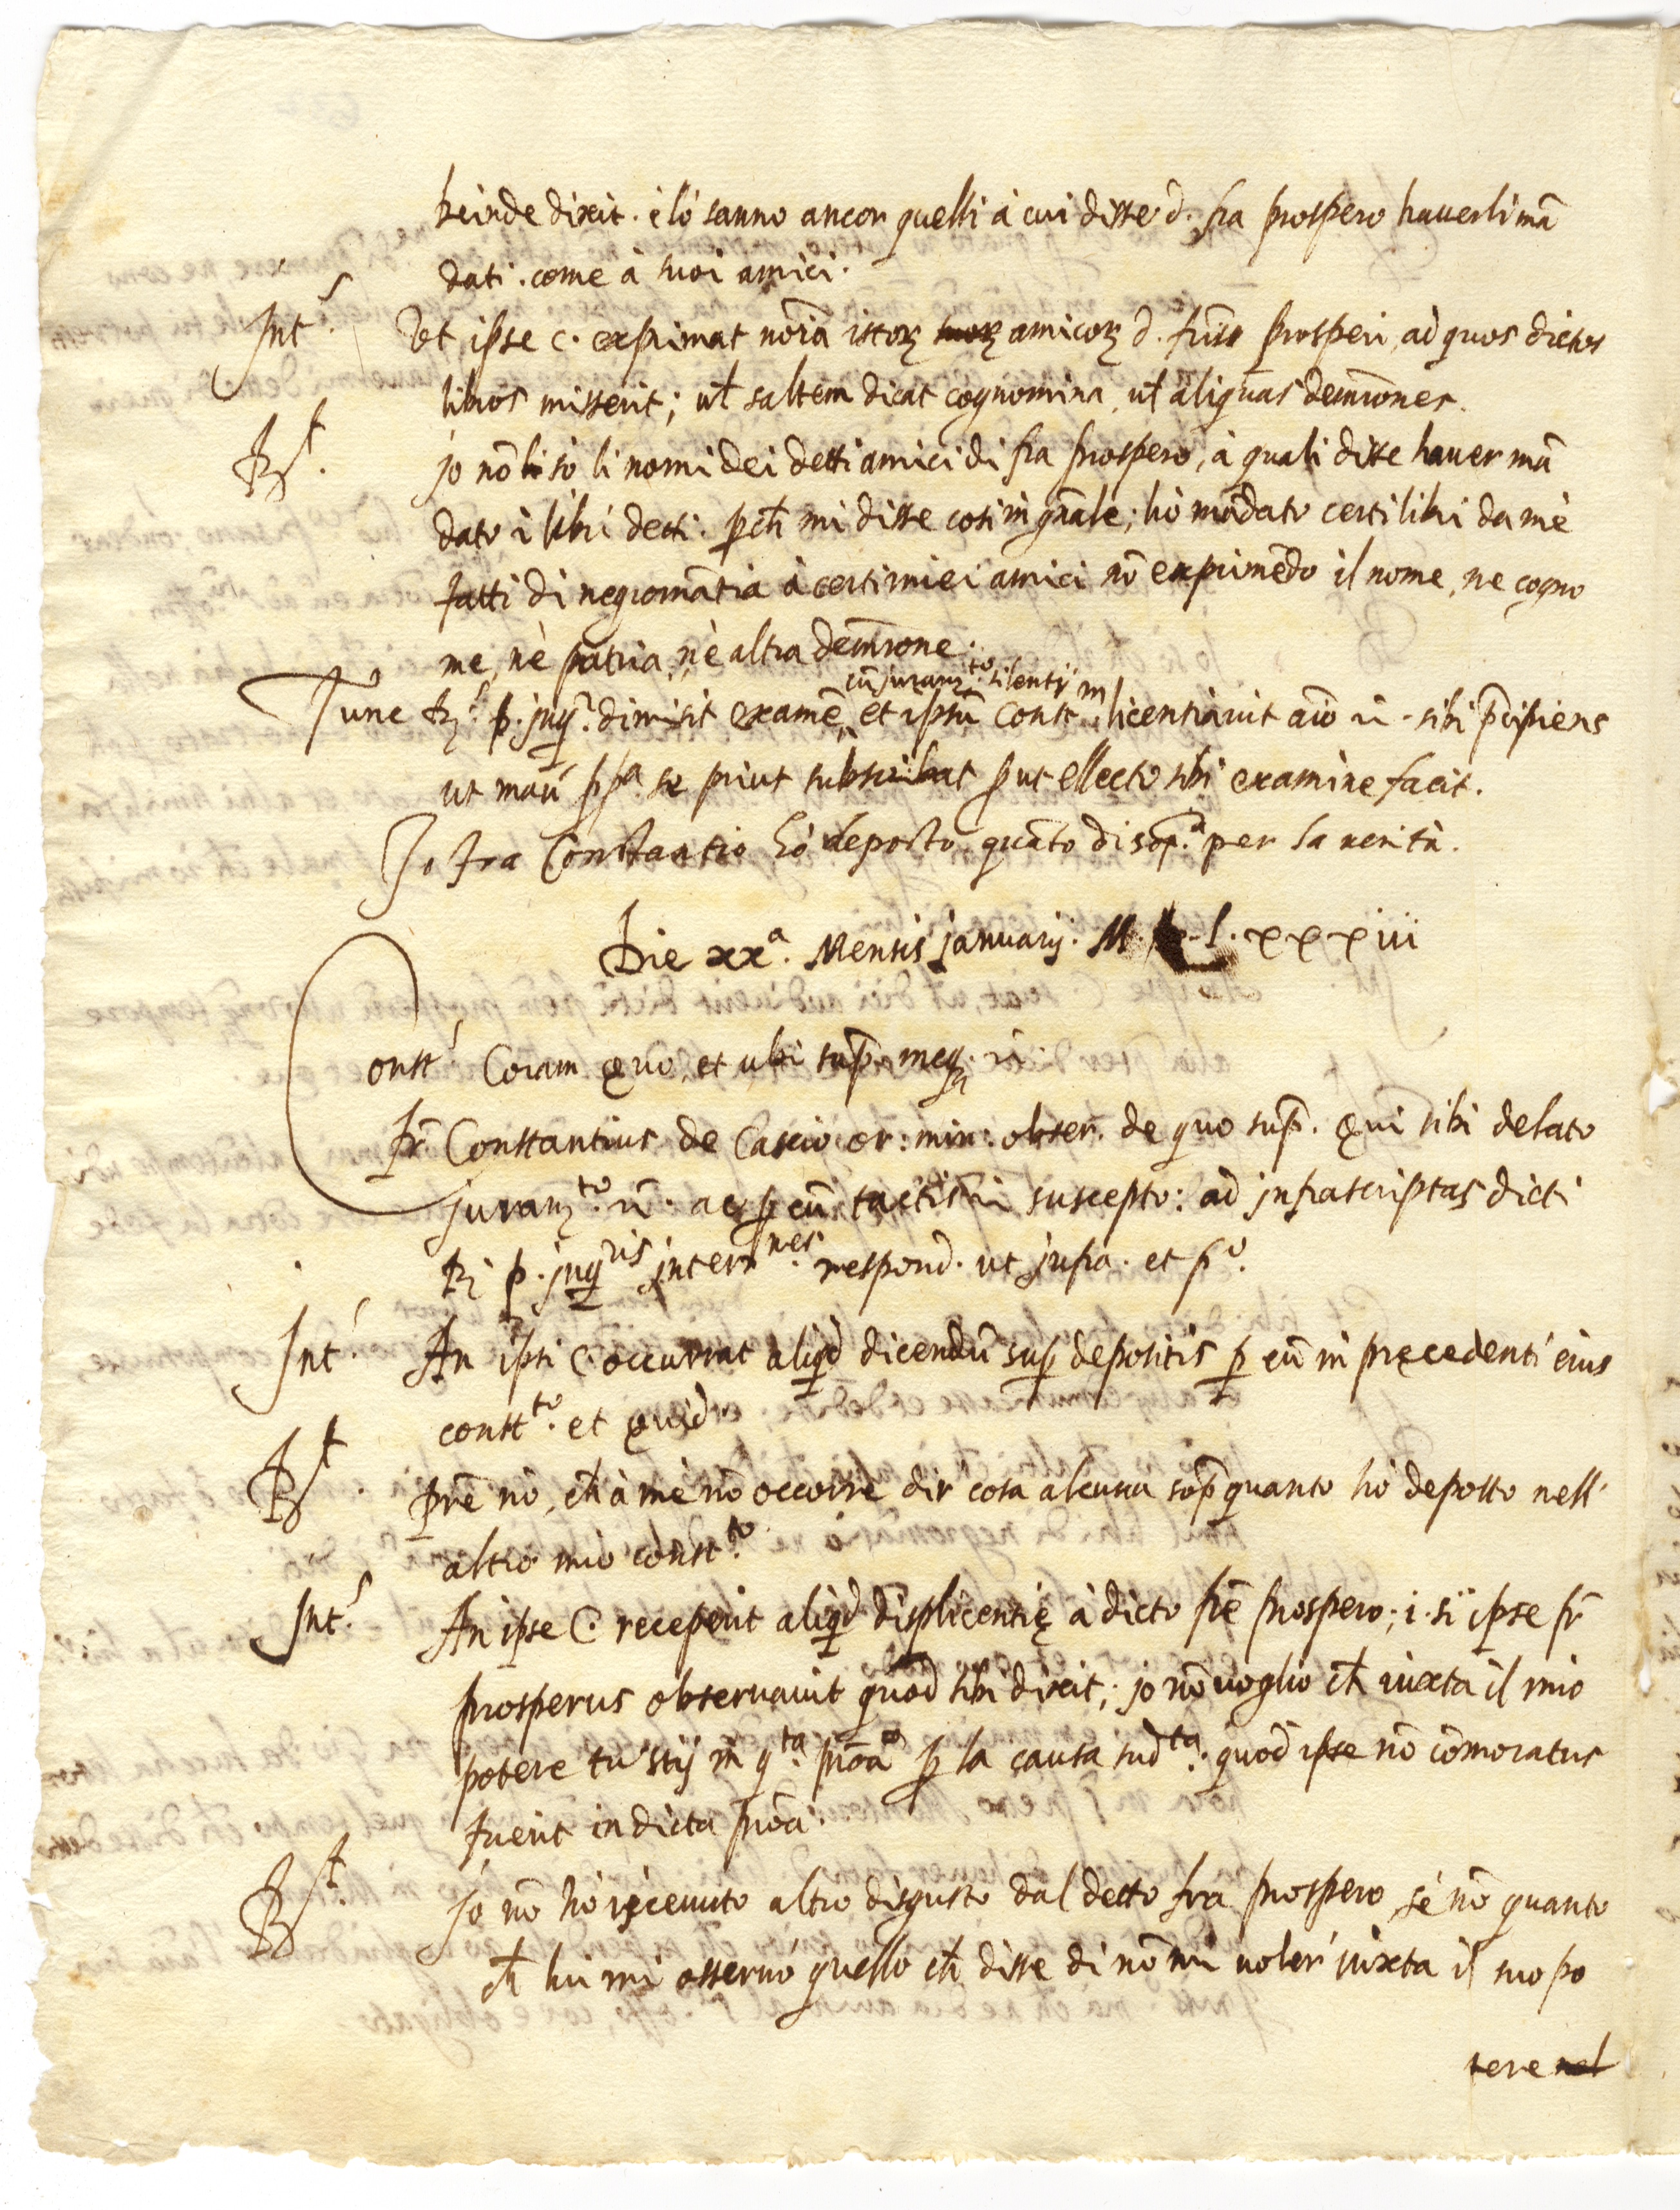 deinde dixit. è lo sanno ancor quelli à cui disse d. fra prospero hauerli mā
dati. come à suoi amici.
Int.s Vt ipse c. exprimat noīa istoꝝ suoꝝ amicoꝝ d. fr̄is prosperi, ad quos dictos
libros misserit; ut̄ saltem dicat cognomina, ut̄ aliquas demrōnes.
Rt. jo nō li so li nomi dei detti amici di fra prospero, à quali disse hauer mā
dato i libri detti. ꝑch̄ mi disse cosi in gn̄ale; hò mādato certi libri da mè
fatti di negromātia à certi miei amici nō exprimēdo il nome, ne cogno
me, nè patria, nè altra demrōne.
cū juram.to silentij
Tunc R. p. jnq.r dimisit examē, et ipsū const.m licentiauit aīo ñ. sibi p̄cipiens
ut manu ꝓp.a se prius subscribat ꝓut ellecto sibi examine facit.
Jo fra Constantio hò deposto quāto di sop.a per la uerità.
Die xx.a Mensis januarij. M. L. xxxiii
Const.s Coram quo, et ubi sup. meq.
fr̄ Constantius de Cascio or: min: obser. de quo sup̄. Qui sibi delato
juram.to ñ. ac ꝑ eū tactis ñ suscepto: ad jnfrascriptas dicti
R. p. jnq.ris jnterr.nes respond. ut jnfra. et p.o
Int.s An ipsi c. occurrat aliqd dicendū sup̄ depositis ꝑ eū in precedenti eius
const.to. et quid
Rt pr̄e nò, ch̄ à mè nō occorre dir cosa alcuna sop̄ quanto hò deposto nell'
altro mio const.to
Int.s An ipse c. receperit aliqd displicentię à dicto fr̄e prospero; i. si ipse fr̄
prosperus obseruauit quod sibi dixit; jo nō uoglio ch̄ iuxta il mio
potere tu stij in q.ta prōa ꝑ la causa sud.ta. quod ipse nō cōmoratus
fuerit in dicta prōa.
Rt. jo nō hò riceuuto altro disgusto dal detto fra prospero sé nō quanto
ch̄ lui mi osseruò quello ch̄ disse di nō mi uoler iuxta il suo po
tere nel